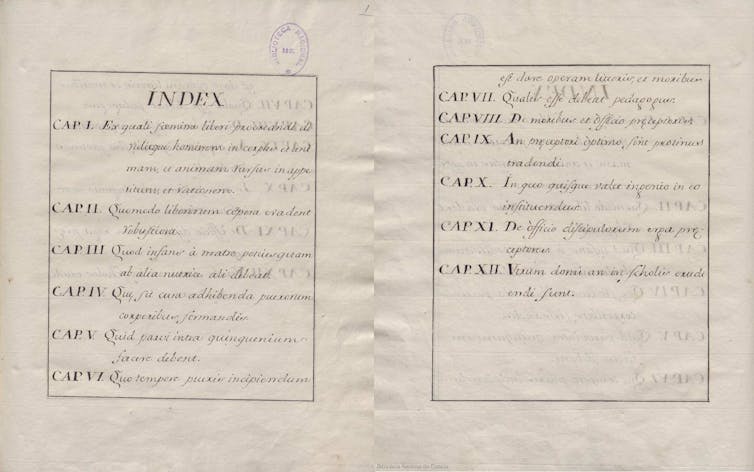 1
BIBLIOTECA NACIONAL
INDEX
CAP. I. Ex quali fœmina liberi procreandi, di
viditque hominem in corpus et ani
mam, et animam rursus in appe
titum, et rationem.
CAP. II. Quomodo liberorum corpora evadent
robustiora.
CAP. III. Quod infans à matre potius quam
ab alia nutrice ali debeat.
CAP. IV. Quę sit cura adhibenda puerorum
corporibus formandis.
CAP. V. Quid parvi intra quinquenium
facere debent.
CAP. VI. Quo tempore pueris incipiendum
est dare operam literis, et moribus
CAP. VII. Qualis esse debeat pedagogus.
CAP. VIII. De moribus et officio pręceptoris
CAP. IX. An pręceptori optimo, sint protinus
tradendi.
CAP. X. In quo quisque valet ingenio in eo
instituendus.
CAP. XI. De officio discipulorum erga prę
ceptores.
CAP. XII. Utrum domi an in scholis erudi
endi sint.
Biblioteca Nacional de España